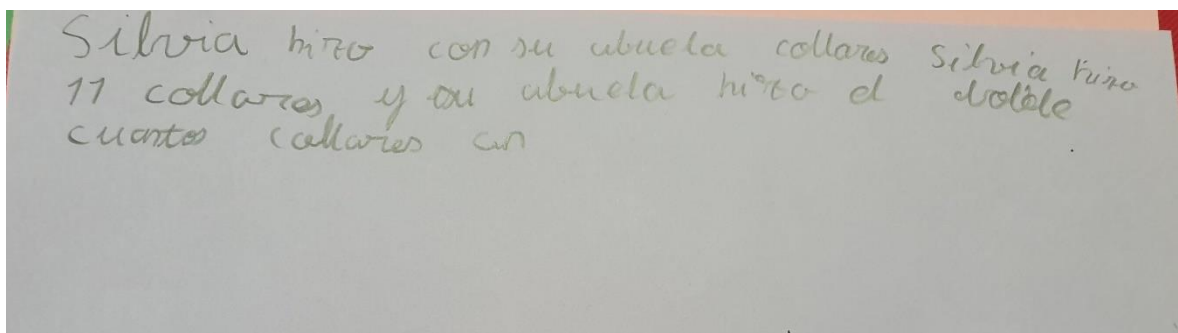 Silvia hizo con su abuela collares Silvia hizo
11 collares y su abuela hizo el doble
cuantos collares an